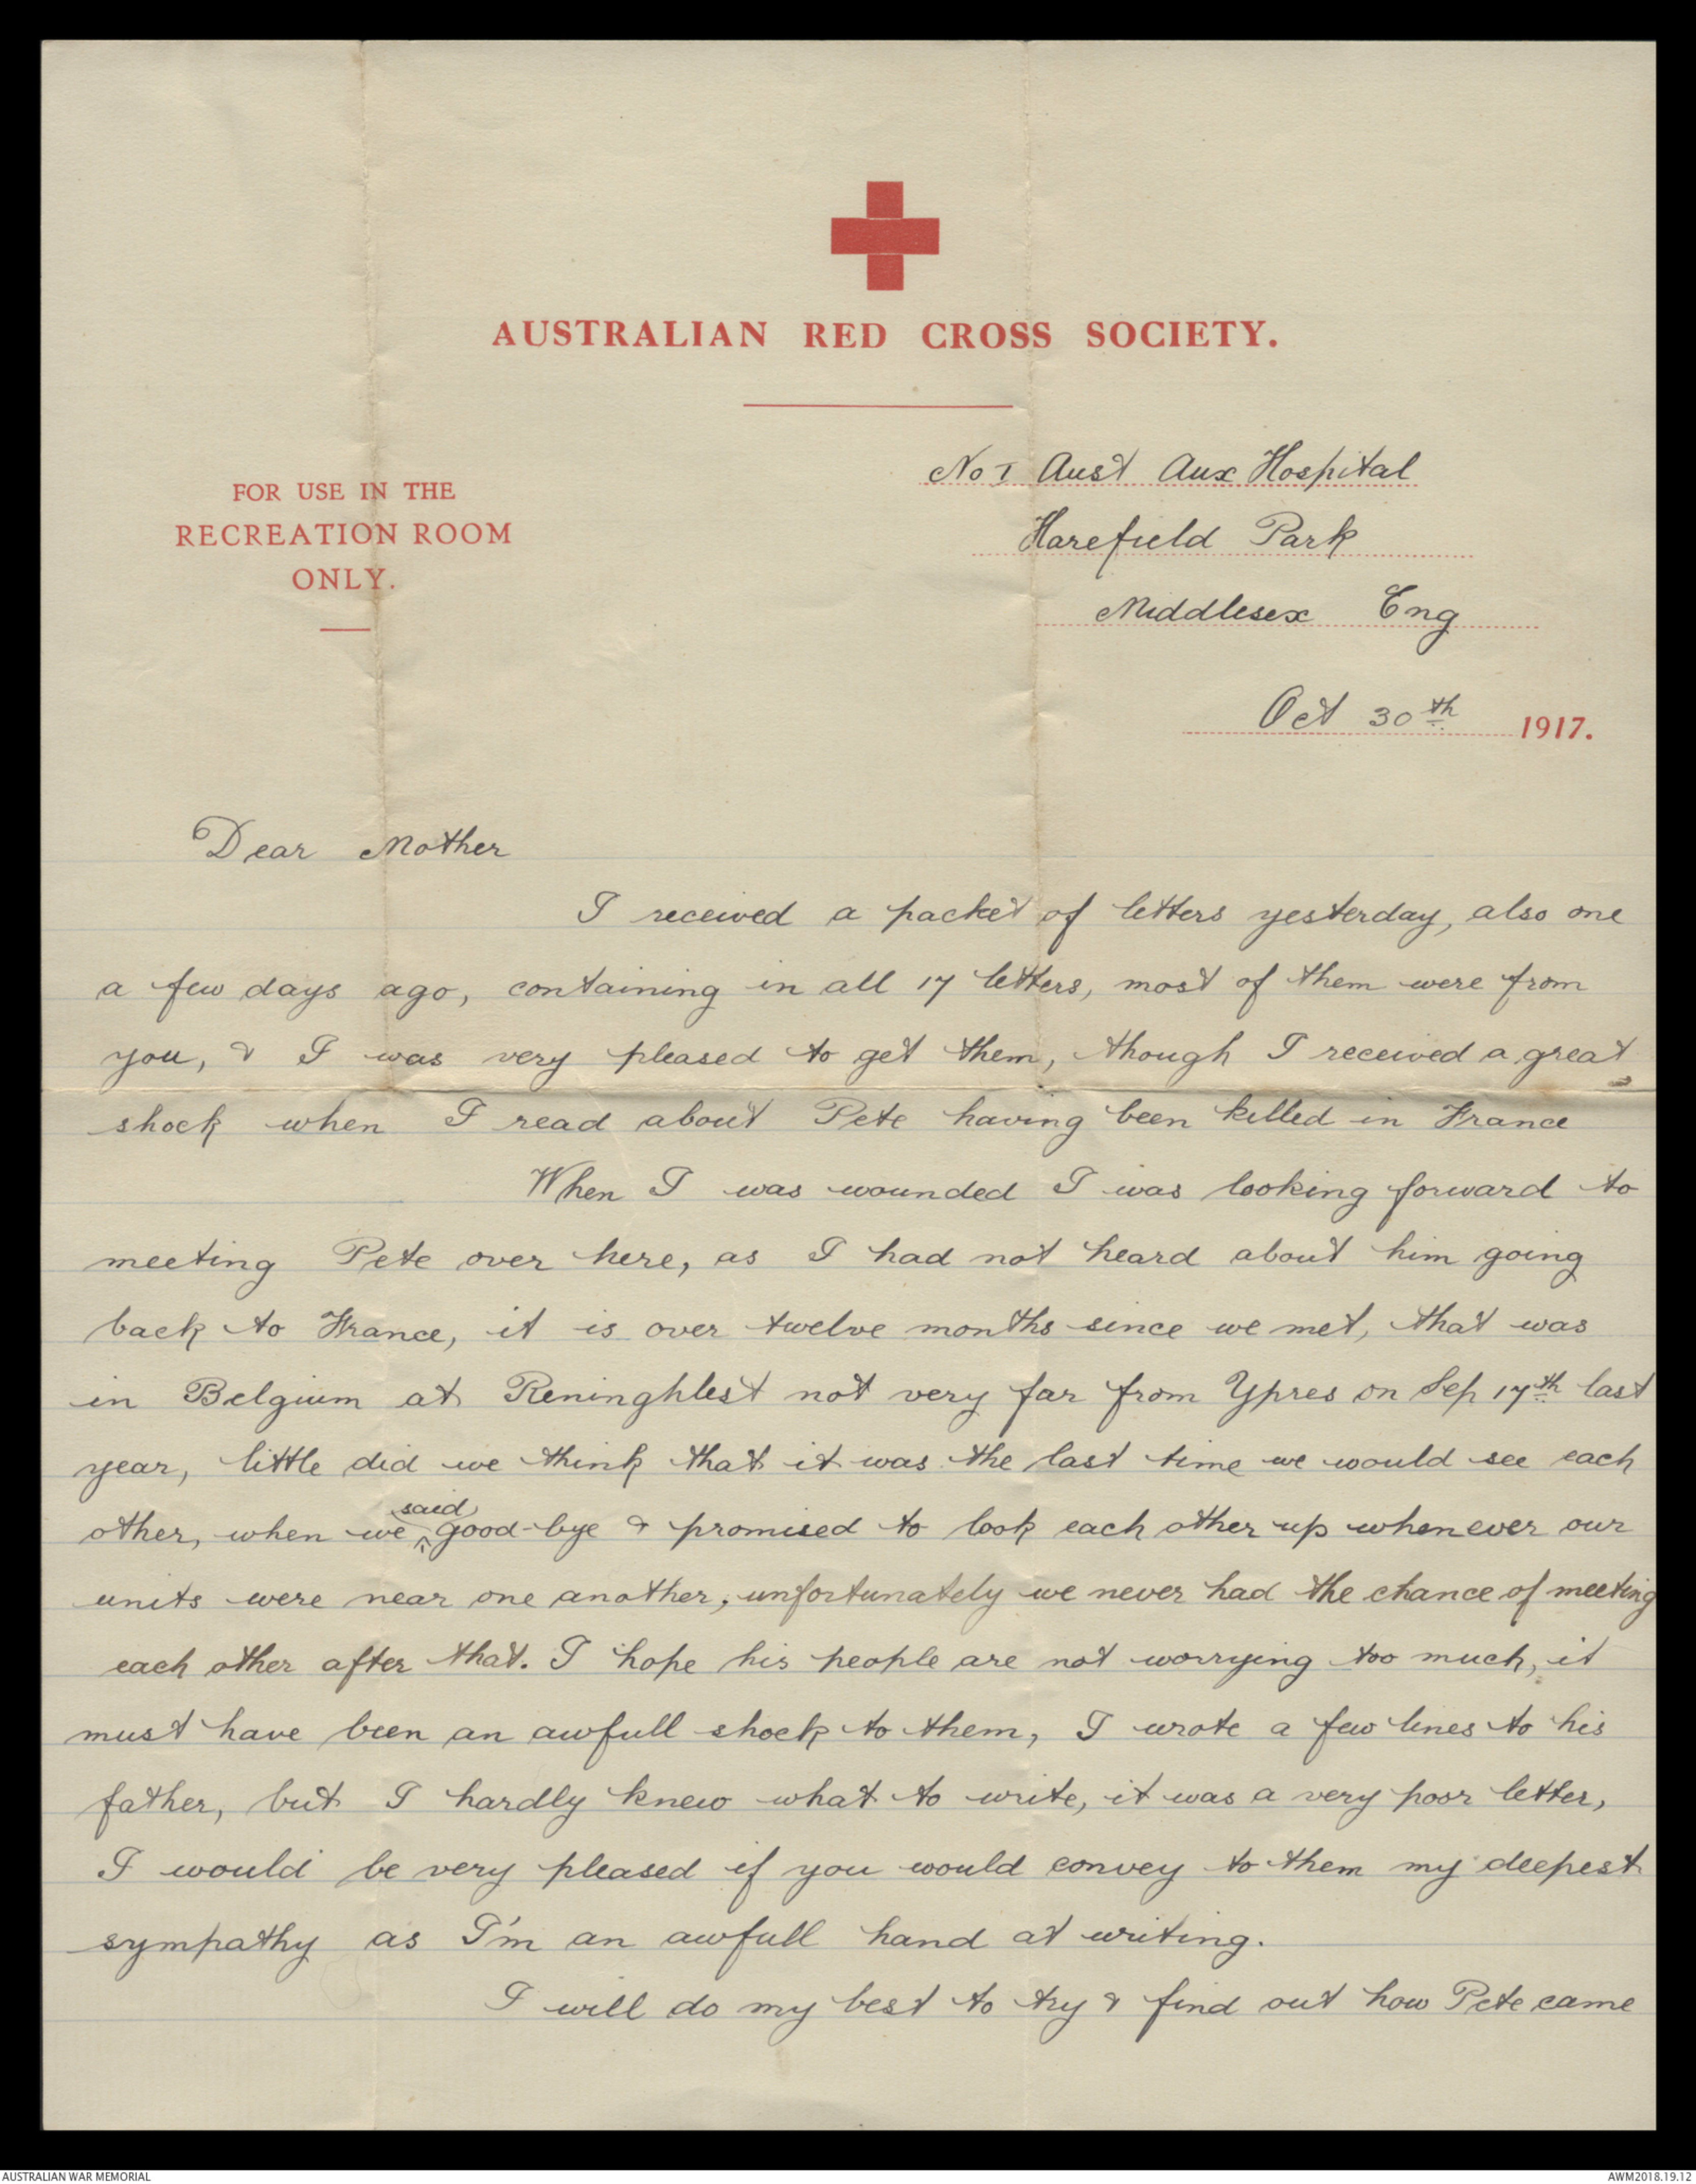 AUSTRALIAN RED CROSS SOCIETY.
FOR USE IN THE
RECREATION ROOM
ONLY.
No 1 Aust Aux Hospital
Harefield Park
Middlesex Eng
Oct 30th 1917.
Dear Mother
I received a packet of letters yesterday, also one
a few days ago, containing in all 17 letters, most of them were from
you, & I was very pleased to get them, though I received a great
shock when I read about Pete having been killed in France
When I was wounded I was looking forward to
meeting Pete over here, as I had not heard about him going
back to France, it is over twelve months since we met, that was
in Belgium at Reninghlest not very far from Ypres on Sep 17th last
year, little did we think that it was the last time we would see each
other, when we said good-bye & promised to look each other up whenever our
units were near one another, unfortunately we never had the chance of meeting
each other after that. I hope his people are not worrying too much, it
must have been an awfull shock to them, I wrote a few lines to his
father, but I hardly knew what to write, it was a very poor letter,
I would be very pleased if you would convey to them my deepest
sympathy as I'm an awfull hand at writing.
I will do my best to try & find out how Pete came
AUSTRALIAN WAR MEMORIAL
AWM2018.19.12